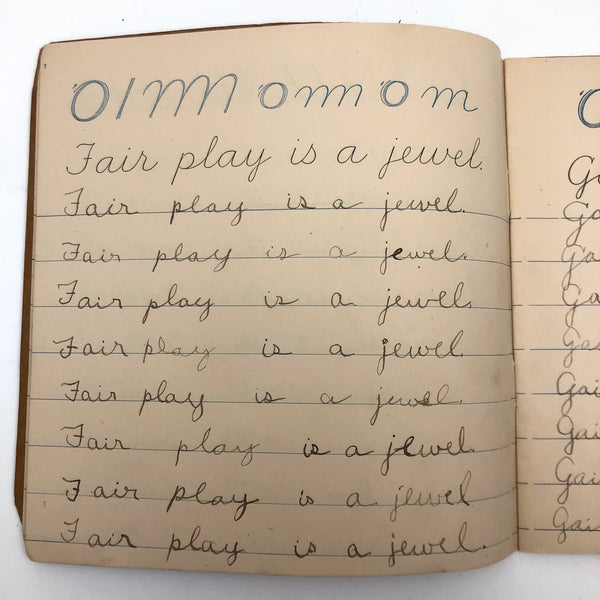 O l m O m m O m
Fair play is a jewel.
Fair play is a jewel.
Fair play is a jewel.
Fair play is a jewel.
Fair play is a jewel.
Fair play is a jewel.
Fair play is a jewel.
Fair play is a jewel
Fair play is a jewel.